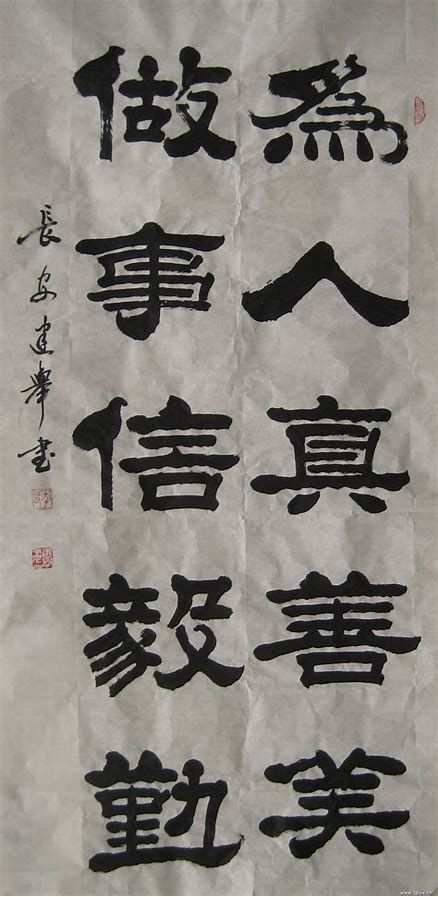 為人真善美
做事信毅勤
長安建舉書